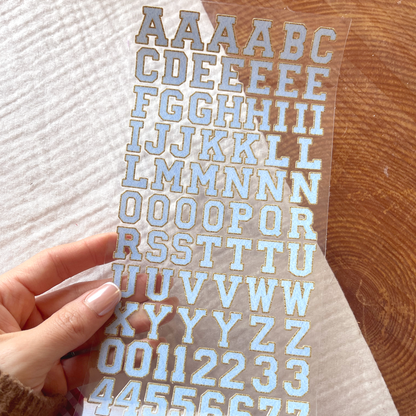 AAAABC
CDEEEEE
FGGHHIII
IJJKKLL
LMMNNNN
OOOOPQR
RSSTTTU
UUVVWW
XYYYZZ
00112233
44556677